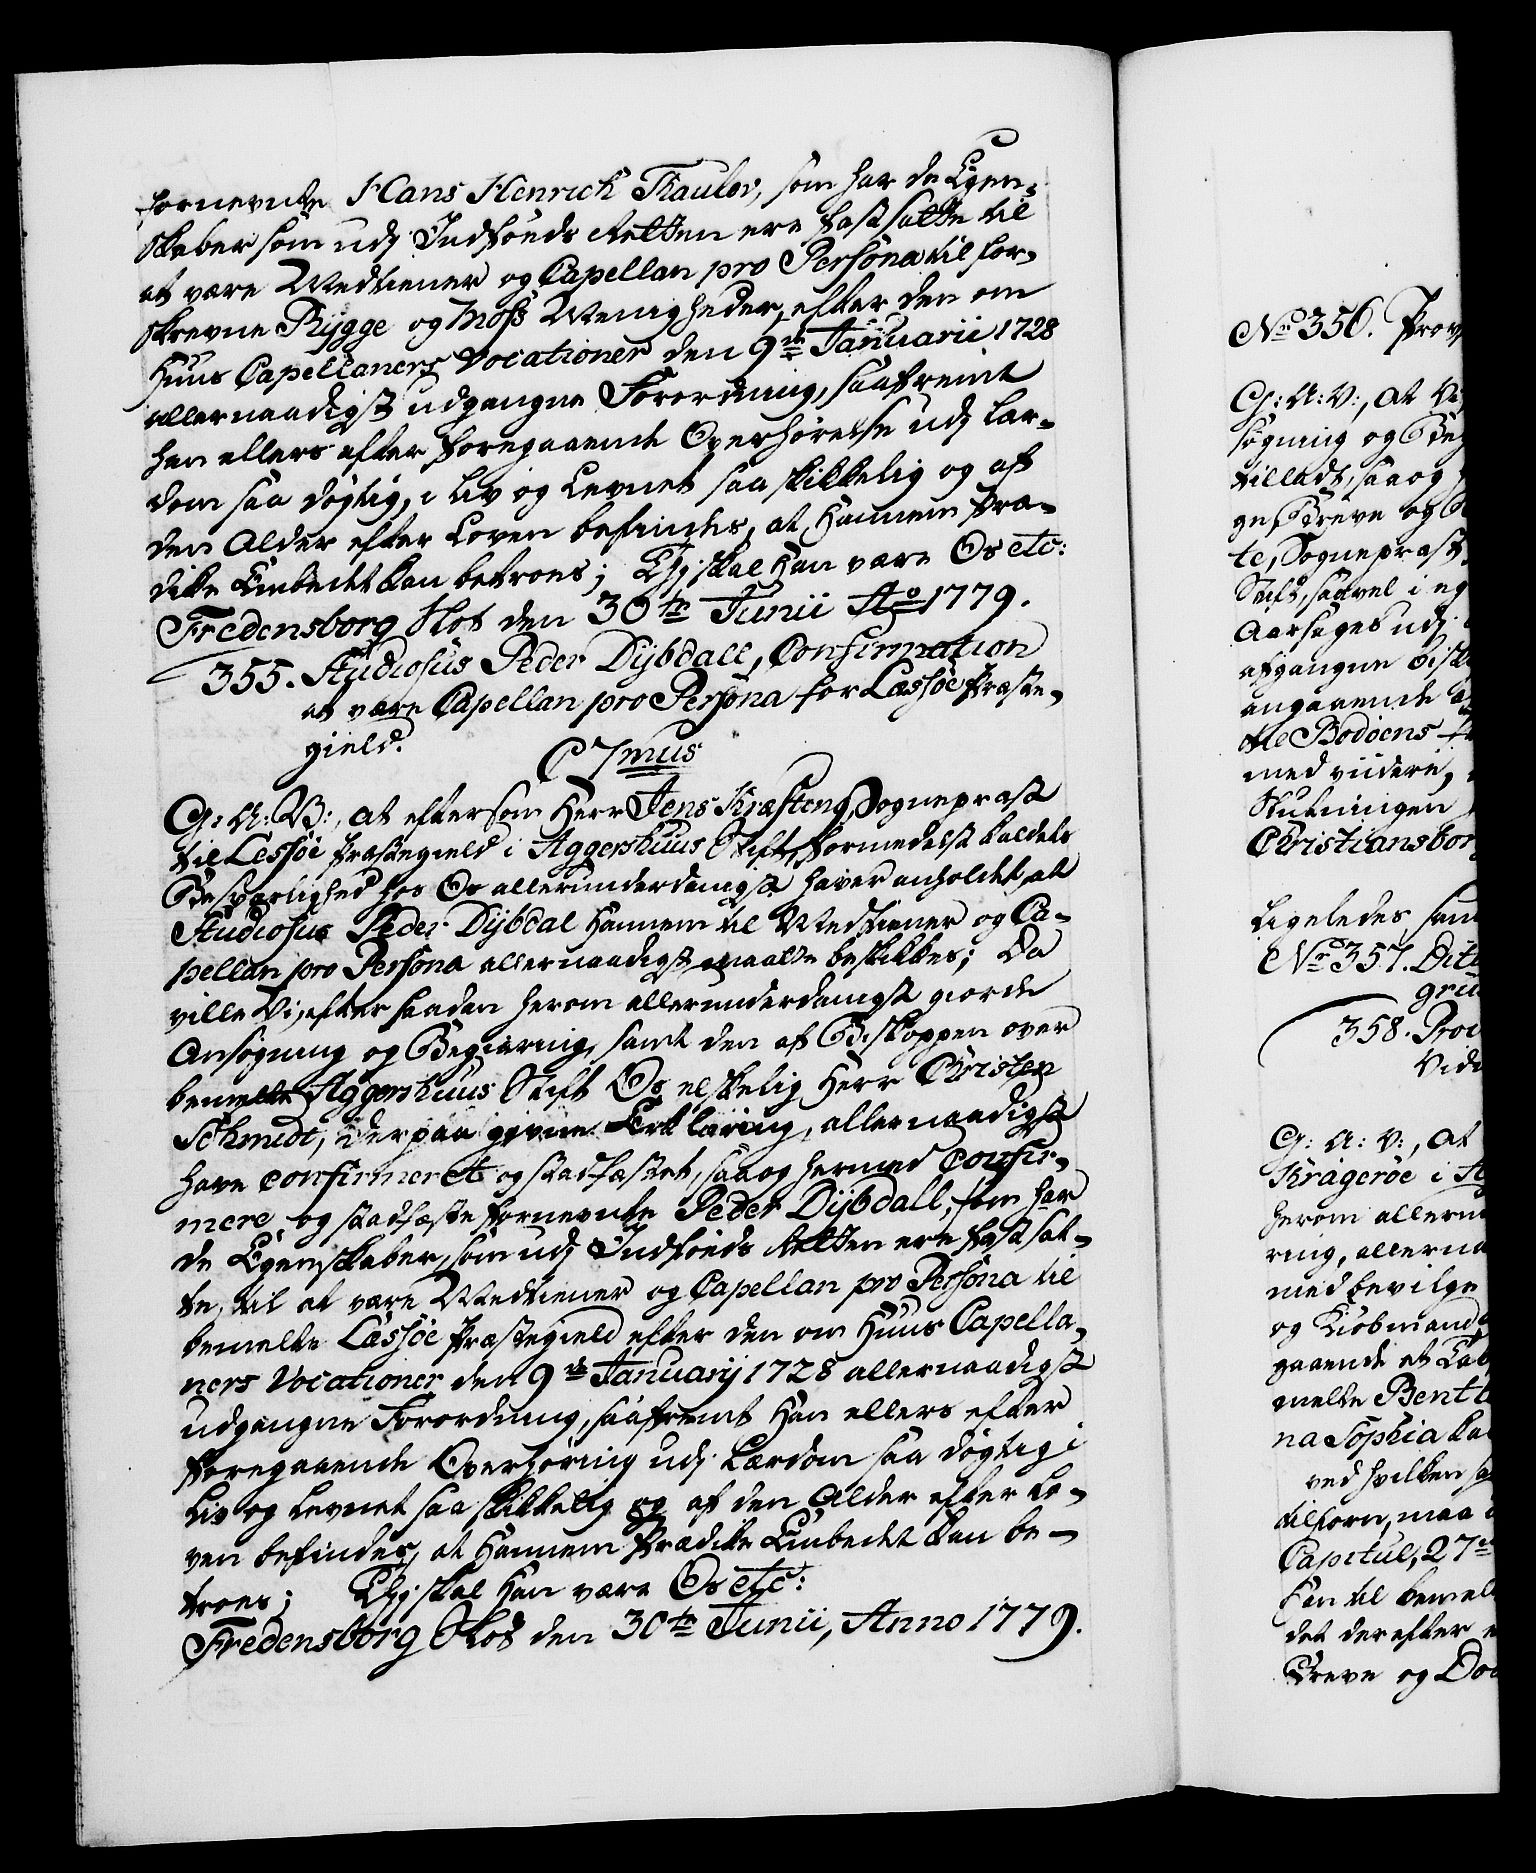 fornevnte Hans Henrich Thaulov, som har de Egen-
skaber som udj Indføds Retten ere fastsatte til
at være Medtiener og Capellan pro Persona til for-
skrevne Rygge og Moss Menigheder, efter den om
Huus Capellaners Vocationer den 9de Januarii 1728
allernaadigst udgangne Forordning, saafremt
han ellers efter foregaaende Overhørelse udj Lær-
dom saa døgtig, i Liv og Levnet saa skikkelig og af
den Alder efter Loven befindes, at Hannem Præ-
dike Embedet kan betroes; Thj skal Han være Os etc:
Fredensborg Slot den 30te Junii Ao 1779.
355. Studiosus Peder Dijbdall, Confirmation
at være Capellan pro Persona for Læssøe Præste-
gield.
C 7mus
G: A: V:, at eftersom Herr Jens Kræfting, Sognepræst
til Lessøe Præstegield i Aggershuus Stift, formedelst Kaldets
Besværlighed hos Os allerunderdanigst haver anholdet, at
Studiosus Peder Dijbdal Hannem til Medtiener og Ca-
pellan pro Persona allernaadigst maatte beskikkes; Da
ville Vi, efter saadan herom allerunderdanigst giorde
Ansøgning og Begiæring, samt den af Biskoppen over
bemelte Aggershuus Stift Os elskelig Herr Christen
Schmidt, derpaa givne Erklæring, allernaadigst
have confirmeret og stadfæstet, saa og hermed Confir-
mere og stadfæste fornevnte Peder Dijbdall, som har
de Egenskaber, som udj Indføds Retten ere fastsat-
te, til at være Medtiener og Capellan pro Persona til
bemelte Læssøe Præstegield efter den om Huus Capella-
ners Vocationer den 9de Januarij 1728 allernaadigst
udgangne Forordning, saafremt Han ellers efter
foregaaende Overhøring udj Lærdom saa døgtig i
Liv og Levnet saa skikkelig og af den Alder efter Lo-
ven befindes, at Hannem Prædike Embedet kan be-
troes; Thj skal Han være Os etc:
Fredensborg Slot den 30te Junii, Anno 1779.
No 356. Prov
G: A: V:, at Vi
søgning og Beg
tilladt, saa og
ge Breve og
te, Sognepræst
Stift, saavel i eg
Aarsages udj
afgangne Bisk
angaaende
Bodøens
med viidere,
Slutningen
Christiansbor
Ligeledes sam
No 357. Dit
358.
Vid
G: A: V:, at
Kragerøe i
herom allern
ring, allerna
med bevilge
og Kiøbmand
gaaende at
melte Bent
na Sophia Ka
ved hvilken
tilforn, maa
Capitul, 27
til bemel
det derefter
Breve og Do